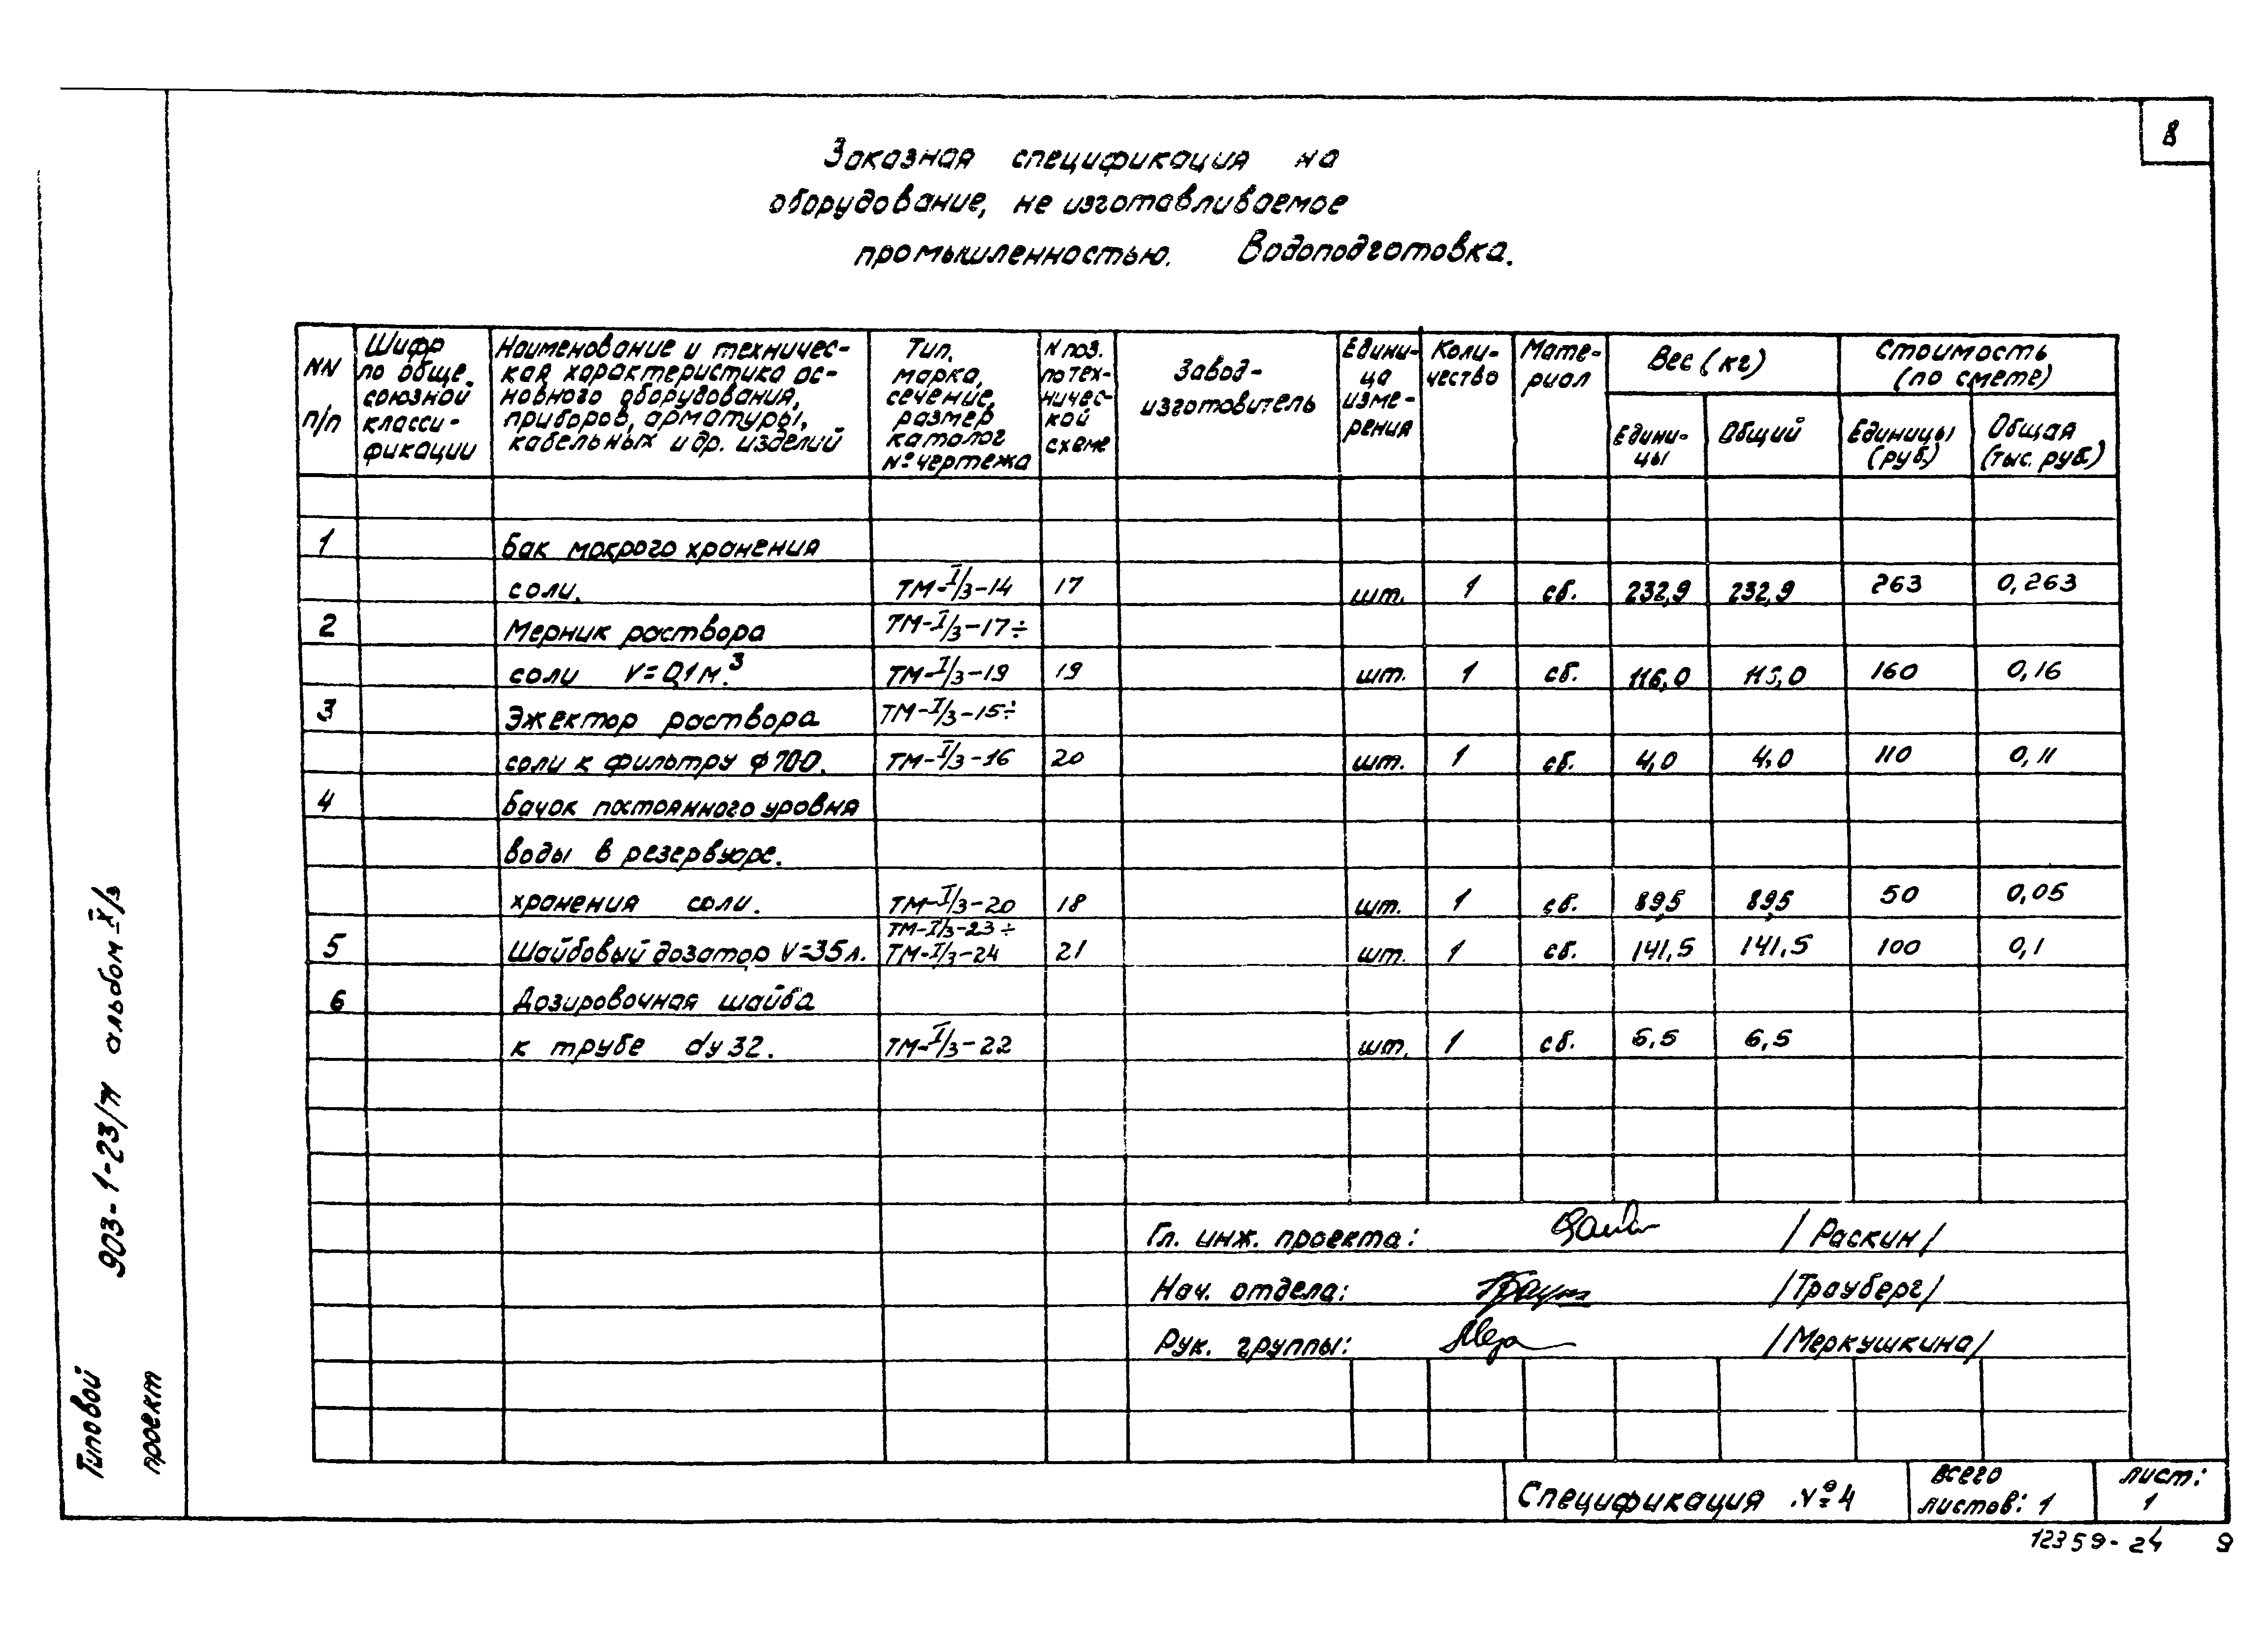 8
Заказная спецификация на
оборудование, не изготавливаемое
промышленностью. Водоподготовка.
NN п/п
Шифр по обще союзной класси- фикации
Наименование и техничес- кая характеристика ос- новного оборудования, приборов, арматуры, кабельных и др. изделий
Тип, марка, сечение, размер каталог № чертежа
N поз. по тех- ничес- кой схеме
Завод- изготовитель
Едини- ца изме- рения
Коли- чество
Мате- риал
Вес (кг)
Едини- цы
Общий
Стоимость (по смете)
Единицы (руб.)
Общая (тыс. руб.)
1 Бак мокрого хранения
соли. ТМ-I/3-14 17 шт. 1 сб. 232,9 232,9 263 0,263
2 Мерник раствора ТМ-I/3-17÷
соли V=0,1м.³ ТМ-I/3-19 19 шт. 1 сб. 116,0 116,0 160 0,16
3 Эжектор раствора ТМ-I/3-15÷
соли к фильтру ф 700. ТМ-I/3-16 20 шт. 1 сб. 4,0 4,0 110 0,11
4 Бачок постоянного уровня
воды в резервуаре.
хранения соли. ТМ-I/3-20 18 шт. 1 сб. 89,5 89,5 50 0,05
ТМ-I/3-23÷
5 Шайбовый дозатор V=35л. ТМ-I/3-24 21 шт. 1 сб. 141,5 141,5 100 0,1
6 Дозировочная шайба
к трубе dy 32. ТМ-I/3-22 шт. 1 сб. 6,5 6,5
Гл. инж. проекта: /Раскин/
Нач. отдела: /Трауберг/
Рук. группы: /Меркушкина/
Спецификация №4
всего листов: 1
лист: 1
12359-24 9
Типовой проект 903-1-23/71 альбом IX/3